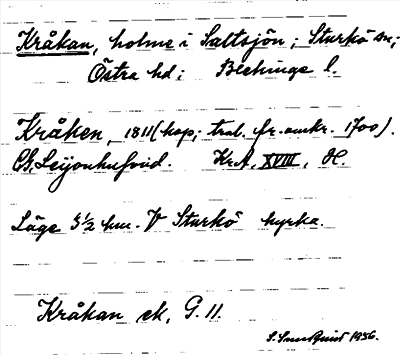 Kråkan, holme i Saltsjön; Sturkö sn;
Östra hd; Blekinge l.
Kråken, 1811 (kop; trol. fr. omkr. 1700).
Ch. Leijonhufvud. KrA, XVIII, H.
Läge 3 1/2 km. V Sturkö kyrka.
Kråkan ek, G. 11.
S. Sundquist 1936.